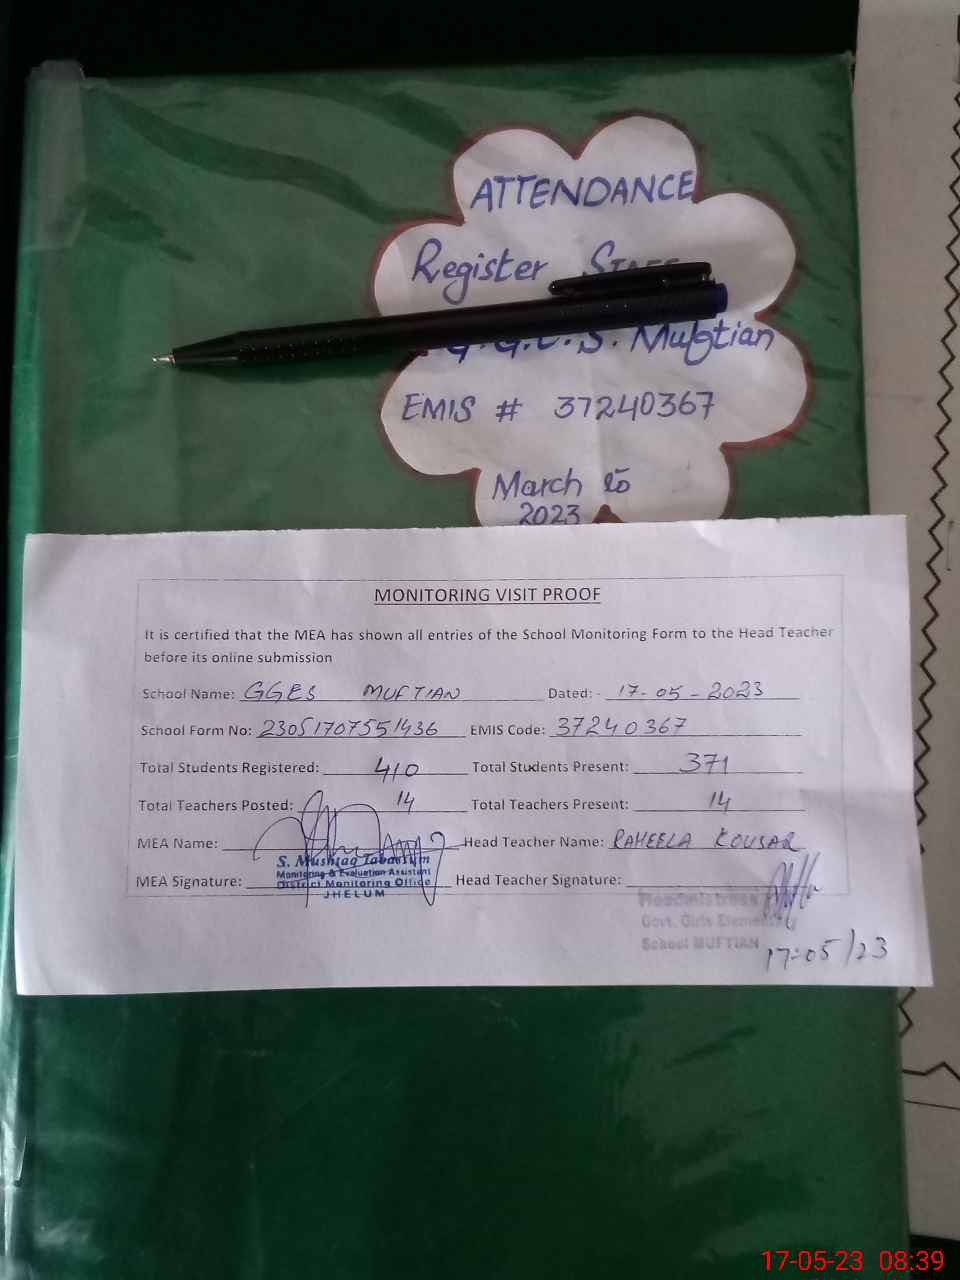 ATTENDANCE
Register Staff
G.G.E.S. Muftian
EMIS # 37240367
March to
2023
MONITORING VISIT PROOF
It is certified that the MEA has shown all entries of the School Monitoring Form to the Head Teacher
before its online submission
School Name: GGES MUFTIAN Dated: - 17-05-2023
School Form No: 23051707551436 EMIS Code: 37240367
Total Students Registered: 410 Total Students Present: 371
Total Teachers Posted: 14 Total Teachers Present: 14
MEA Name: Head Teacher Name: RAHEELA KOUSAR
S. Mushtaq Tabassum
Monitoring & Evaluation Assistant
MEA Signature: Head Teacher Signature:
District Monitoring Office
JHELUM
Headmistress
Govt. Girls Elementary
School MUFTIAN
17-05/23
17-05-23 08:39